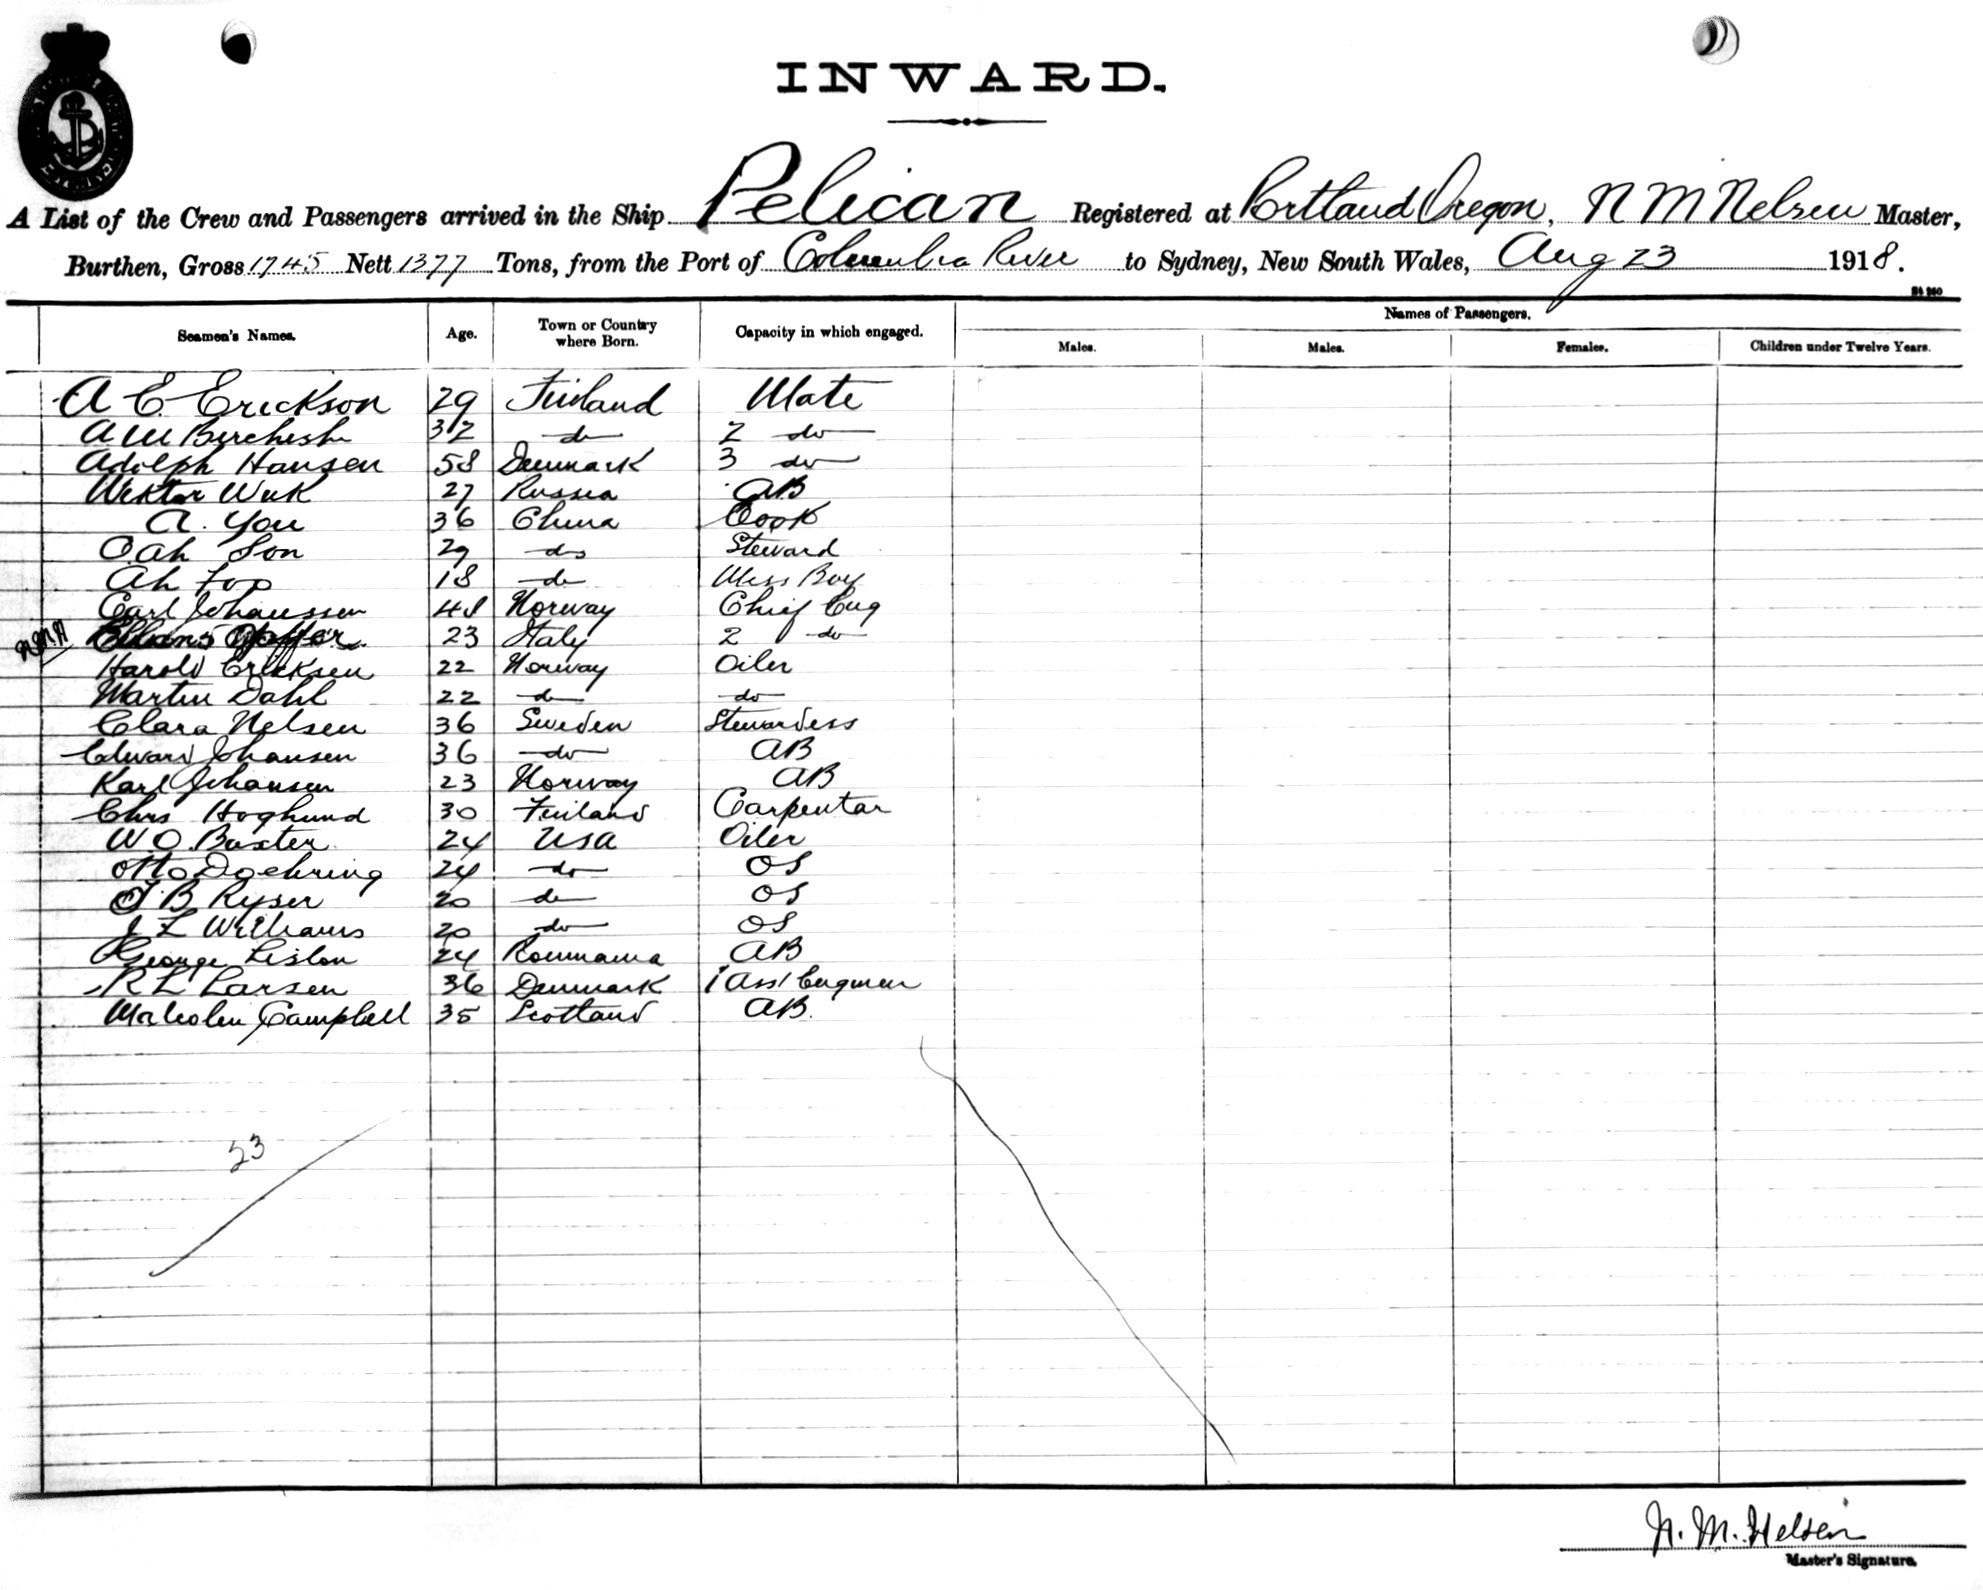 INWARD.
A List of the Crew and Passengers arrived in the Ship Pelican Registered at Portland Oregon, N M Nelsen Master,
Burthen, Gross 1745 Nett 1377 Tons, from the Port of Columbia River to Sydney, New South Wales, Aug 23 1918.
Names of Passengers.
Seamen's Names. Age. Town or Country where Born. Capacity in which engaged. Males. Males. Females. Children under Twelve Years.
A E Erickson 29 Finland Mate
A W 32 do 2 do
Adolph Hansen 58 Denmark 3 do
Wiktor Wuk 27 Russia AB
A. You 36 China Cook
Oah Son 29 do Steward
Ah Fop 18 do Mess Boy
Carl Johanssen 48 Norway Chief Eng
23 Italy 2 do
Harold Ericksen 22 Norway Oiler
Martin Dahl 22 do do
Clara Nelsen 36 Sweden Stewardess
Edward Johansen 36 do AB
Karl Johansen 23 Norway AB
Chrs Hoglund 30 Finland Carpentar
W O Baxter 24 USA Oiler
Otto Doehring 24 do OS
J B Ryser 20 do OS
J L Williams 20 do OS
George Lislon 24 Roumania AB
R L Larsen 36 Denmark 1 Asst
Malcolm Campbell 35 Scotland AB.
23
N. M. Nelsen
Master's Signature.